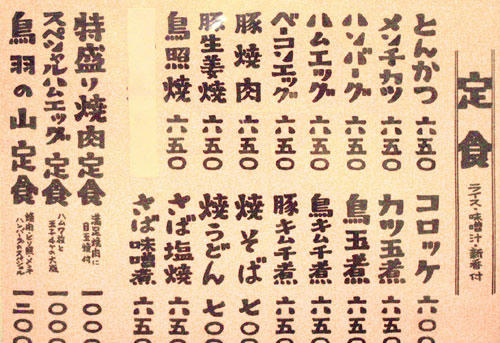 定食
ライス・味噌汁・新香付
とんかつ 六五〇
メンチカツ 六五〇
ハンバーグ 六五〇
ハムエッグ 六五〇
ベーコンエッグ 六五〇
豚焼肉 六五〇
豚生姜焼 六五〇
鳥照焼 六五〇
コロッケ 六〇〇
カツ玉煮 六五〇
鳥玉煮 六五〇
鳥キムチ煮 六五〇
豚キムチ煮 六五〇
焼そば 七〇〇
焼うどん 七〇〇
さば塩焼 六五〇
さば味噌煮 六五〇
特盛り焼肉定食 満足焼肉に目玉焼付 一〇〇〇
スペシャルハムエッグ定食 ハム7枚と玉子4ケの大版 一〇〇〇
鳥羽の山定食 焼肉・とり照・メンチ ハンバーグのスペシャル 一三〇〇